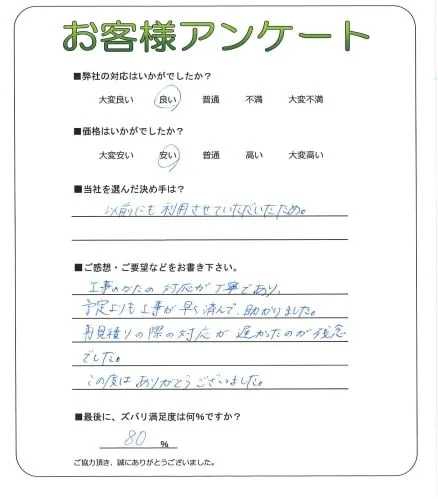 お客様アンケート
■弊社の対応はいかがでしたか？
大変良い 良い 普通 不満 大変不満
■価格はいかがでしたか？
大変安い 安い 普通 高い 大変高い
■当社を選んだ決め手は？
以前にも利用させていただいたため。
■ご感想・ご要望などをお書き下さい。
工事のかたの対応が丁寧であり、
予定よりも工事が早く済んで、助かりました。
再見積りの際の対応が遅かったのが残念
でした。
この度はありがとうございました。
■最後に、ズバリ満足度は何％ですか？
80 ％
ご協力頂き、誠にありがとうございました。